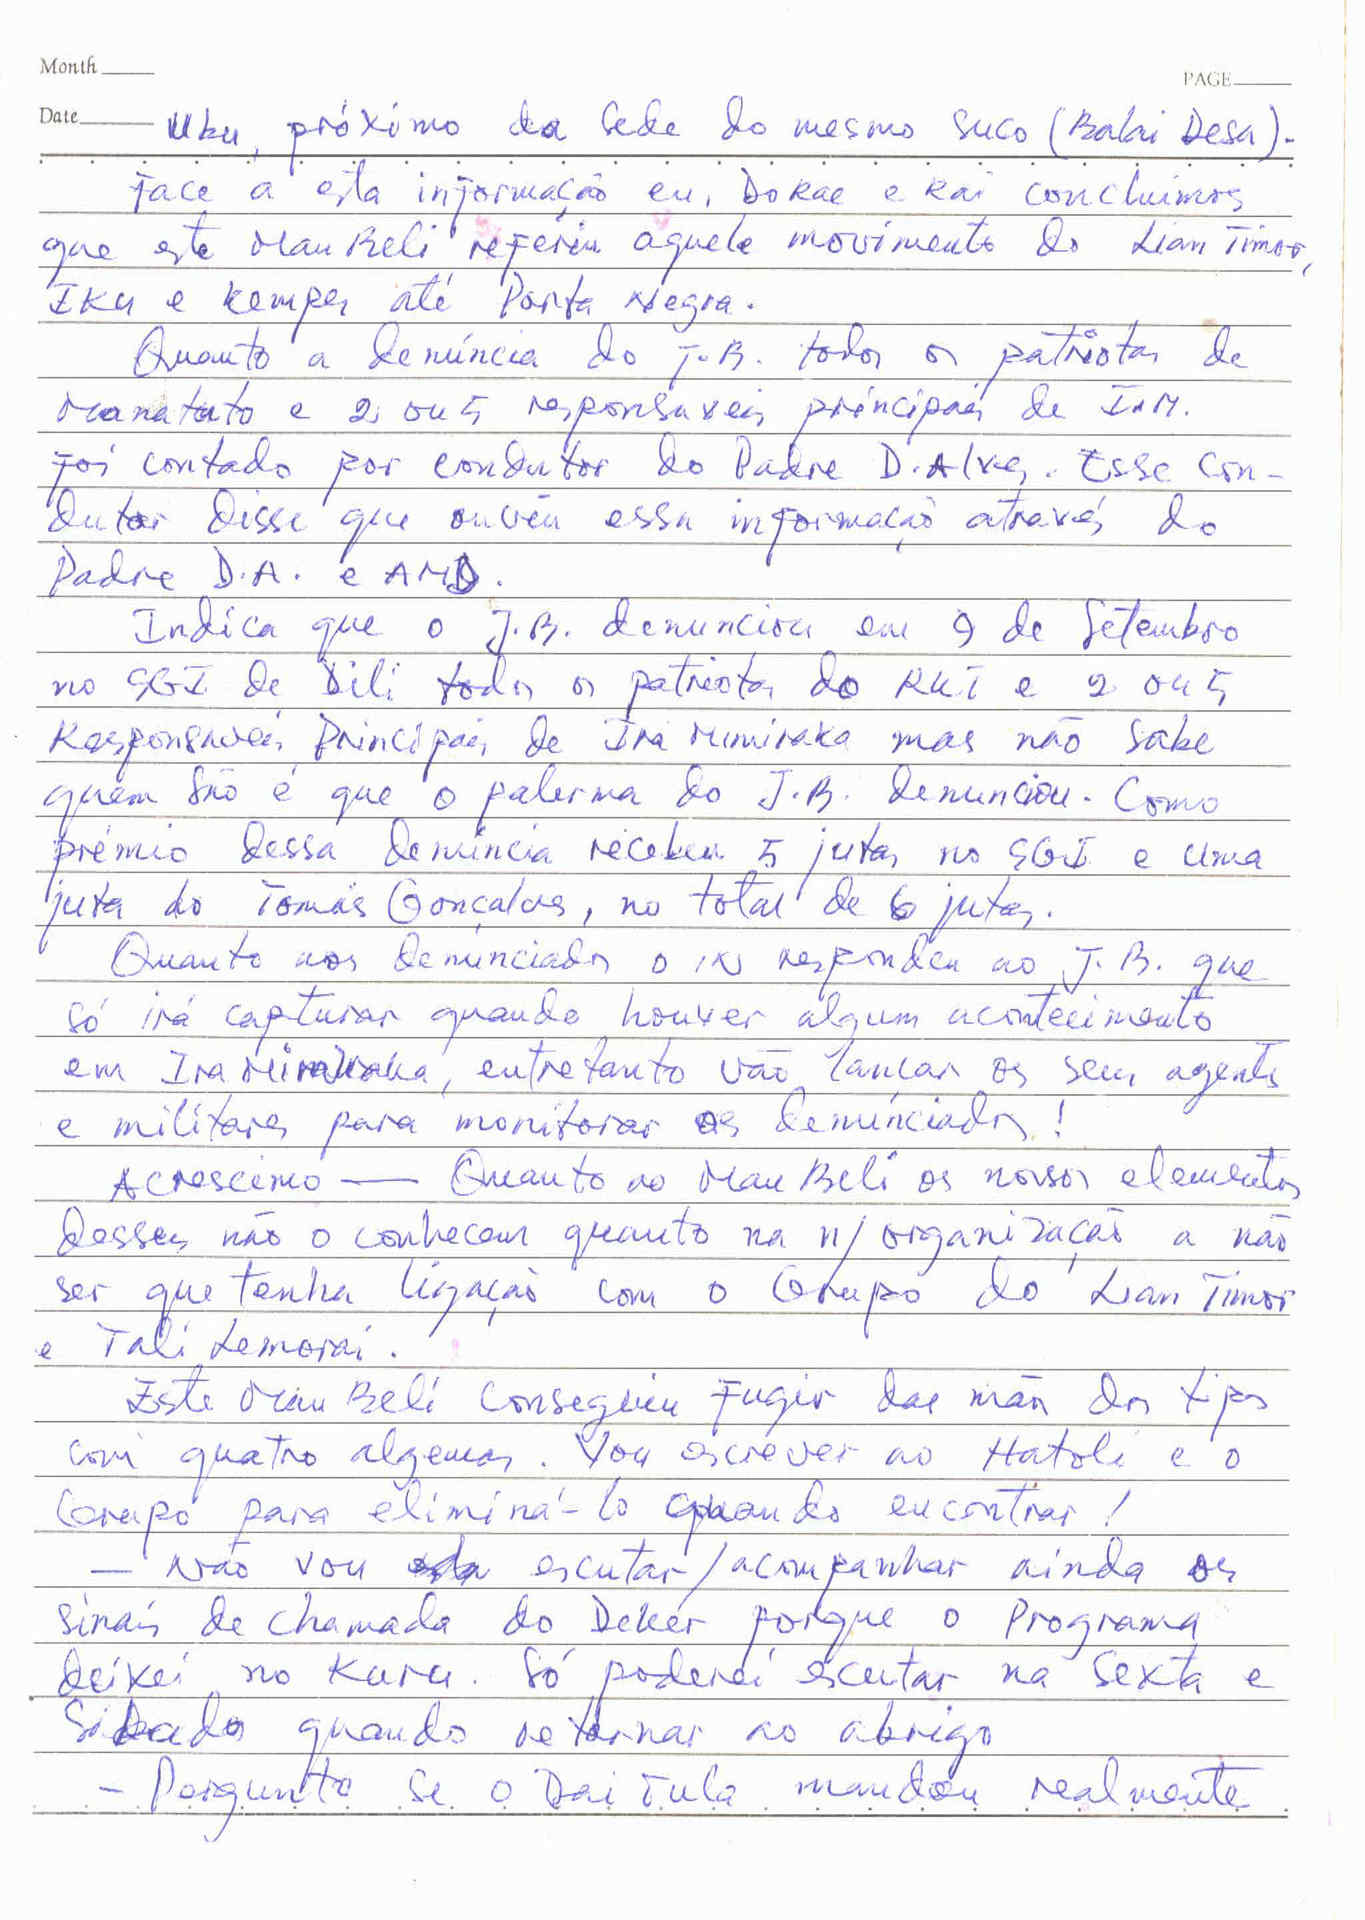 Month
PAGE
Date
Uku, próximo da Sede do mesmo suco (Balai Desa).
Face a esta informação eu, Dokae e Rai concluimos
que este Mau Beli referiu aquele movimento do Lian Timor,
Iku e Kemper até Ponta Negra.
Quanto a denúncia do J.B. todos os patriotas de
Manatuto e 2 ou 5 responsáveis principais de I.M.
foi contado por condutor do Padre D. Alves. Esse con-
dutor disse que ouviu essa informação através do
Padre D.A. e AMD.
Indica que o J.B. denunciou em 9 de Setembro
no SGI de Dili todos os patriotas do RKI e 2 ou 5
Responsáveis Principais de Ira Mimiraka mas não sabe
quem são é que o palerma do J.B. denunciou. Como
prémio dessa denúncia recebeu 5 jutas no SGI e uma
juta do Tomás Gonçalves, no total de 6 jutas.
Quanto aos denúnciados o IN respondeu ao J.B. que
só irá capturar quando houver algum acontecimento
em Ira Miraka, entretanto vão lançar os seus agentes
e militares para monitorar os denúnciados!
Acréscimo — Quanto ao Mau Beli os nossos elementos
desses não o conhecem quanto na n/ organização a não
ser que tenha ligação com o Grupo do Lian Timor
e Tali Lemorai.
Este Mau Beli conseguiu fugir das mãos dos tipos
com quatro algemas. Vou escrever ao Hatoli e o
Grupo para eliminá-lo quando encontrar!
— Não vou escutar/acompanhar ainda os
sinais de chamada do Deker porque o Programa
deixei no Kuru. Só poderei escutar na Sexta e
Sábado quando retornar ao abrigo
- Pergunto se o Dai Tula mandou realmente